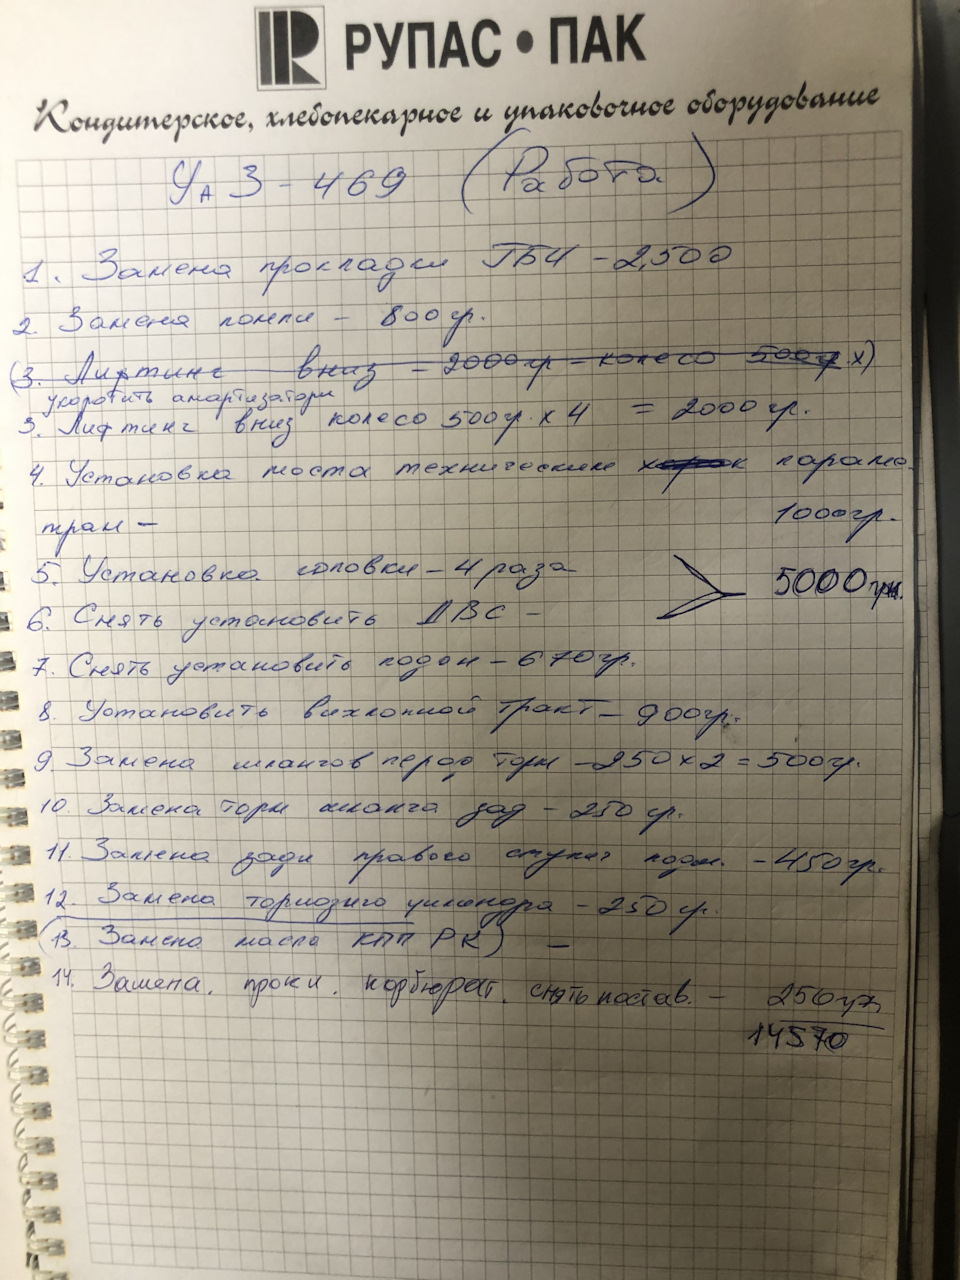 РУПАС • ПАК
Кондитерское, хлебопекарное и упаковочное оборудование
УАЗ - 469 (Работа)
1. Замена прокладки ГБЦ - 2,500
2. Замена помпи - 800 гр.
(3. Лифтинг вниз - 2000 гр - колесо 500 гр. х)
укоротить амартизатори
3. Лифтинг вниз колесо 500 гр. х 4 = 2000 гр.
4. Установка моста техническим парамо-
трам - 1000 гр.
5. Установка головки - 4 раза
5000 грн.
6. Снять установить ДВС -
7. Снять установить подон - 670 гр.
8. Установить вихлопной тракт - 900 гр.
9. Замена шлангов перод торм - 250 х 2 = 500 гр.
10. Замена торм шланга зад - 250 гр.
11. Замена зади правого ступич подш. - 450 гр.
12. Замена тормозного цилиндра - 250 гр.
(13. Замена масла КПП РК) -
14. Замена. прокл. карбюрат. снять постав. - 250 гр.
14570